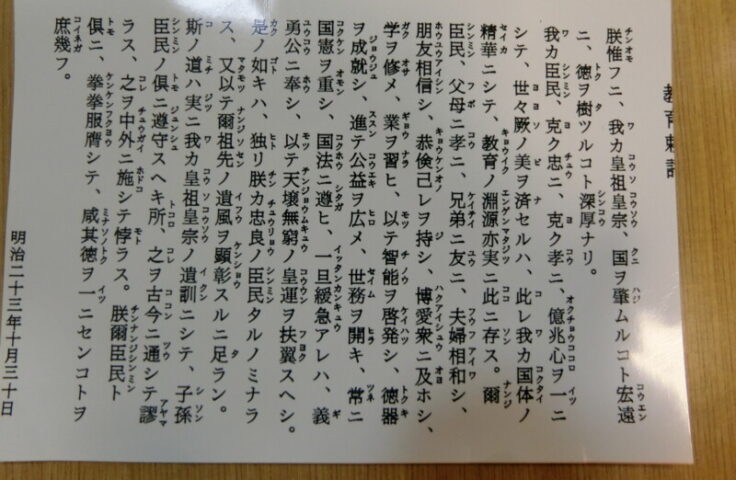 教育勅語
朕惟フニ、我カ皇祖皇宗、国ヲ肇ムルコト宏遠
ニ、徳ヲ樹ツルコト深厚ナリ。
我カ臣民、克ク忠ニ、克ク孝ニ、億兆心ヲ一ニ
シテ、世々厥ノ美ヲ済セルハ、此レ我カ国体ノ
精華ニシテ、教育ノ淵源亦実ニ此ニ存ス。爾
臣民、父母ニ孝ニ、兄弟ニ友ニ、夫婦相和シ、
朋友相信シ、恭倹己レヲ持シ、博愛衆ニ及ホシ、
学ヲ修メ、業ヲ習ヒ、以テ智能ヲ啓発シ、徳器
ヲ成就シ、進テ公益ヲ広メ、世務ヲ開キ、常ニ
国憲ヲ重シ、国法ニ遵ヒ、一旦緩急アレハ、義
勇公ニ奉シ、以テ天壌無窮ノ皇運ヲ扶翼スヘシ。
是ノ如キハ、独リ朕カ忠良ノ臣民タルノミナラ
ス、又以テ爾祖先ノ遺風ヲ顕彰スルニ足ラン。
斯ノ道ハ実ニ我カ皇祖皇宗ノ遺訓ニシテ、子孫
臣民ノ倶ニ遵守スヘキ所、之ヲ古今ニ通シテ謬
ラス、之ヲ中外ニ施シテ悖ラス。朕爾臣民ト
倶ニ、拳拳服膺シテ、咸其徳ヲ一ニセンコトヲ
庶幾フ。
明治二十三年十月三十日